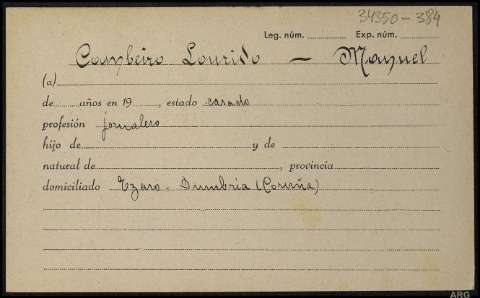 34350-384
Leg. núm. Exp. núm.
Combeiro Lourido — Manuel
(a)
de años en 19 , estado casado
profesión jornalero
hijo de y de
natural de , provincia
domiciliado Ezaro. Dumbría (Coruña)
ARG